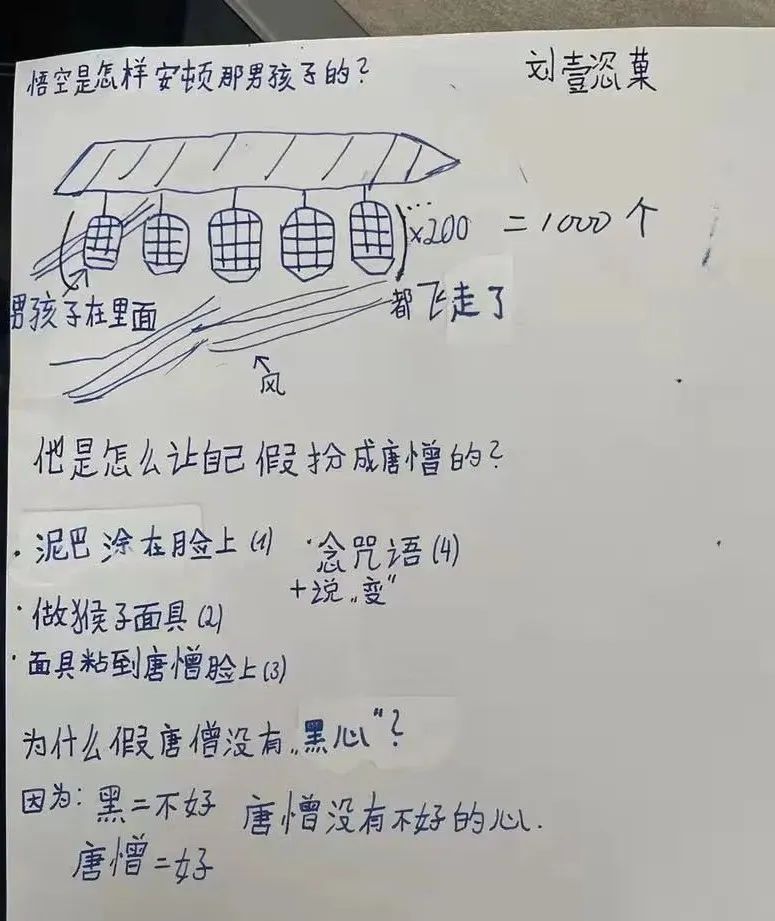 悟空是怎样安顿那男孩子的?
刘壹恣菓
...
×200 = 1000个
男孩子在里面
都飞走了
风
他是怎么让自己假扮成唐憎的?
· 泥巴涂在脸上 (1)
· 念咒语 (4)
+说„变“
· 做猴子面具 (2)
· 面具粘到唐憎脸上 (3)
为什么假唐僧没有„黑心“?
因为: 黑=不好 唐憎没有不好的心.
唐憎=好